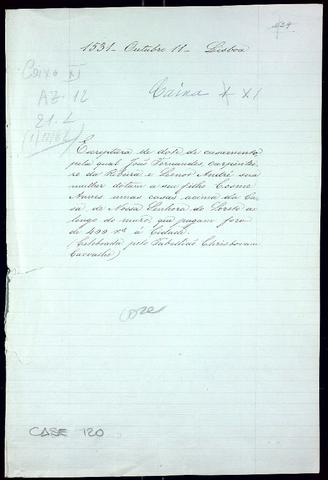 1531 - Outubro 11 - Lisboa
Caixa XI
AZ 12
21.2
Caixa X XI
Escriptura de dote de casamento
pela qual João Fernandes, carpintei-
ro da Ribeira e Lianor André sua
mulher dotam a seu filho Cosme
Nunes umas casas acima da Ca-
sa de Nossa Senhora do Loreto ao
longo do muro, que pagam foro
de 400 rs á Cidade.
(Celebrada pelo Tabellião Christovam
Carvalho)
CASE 120